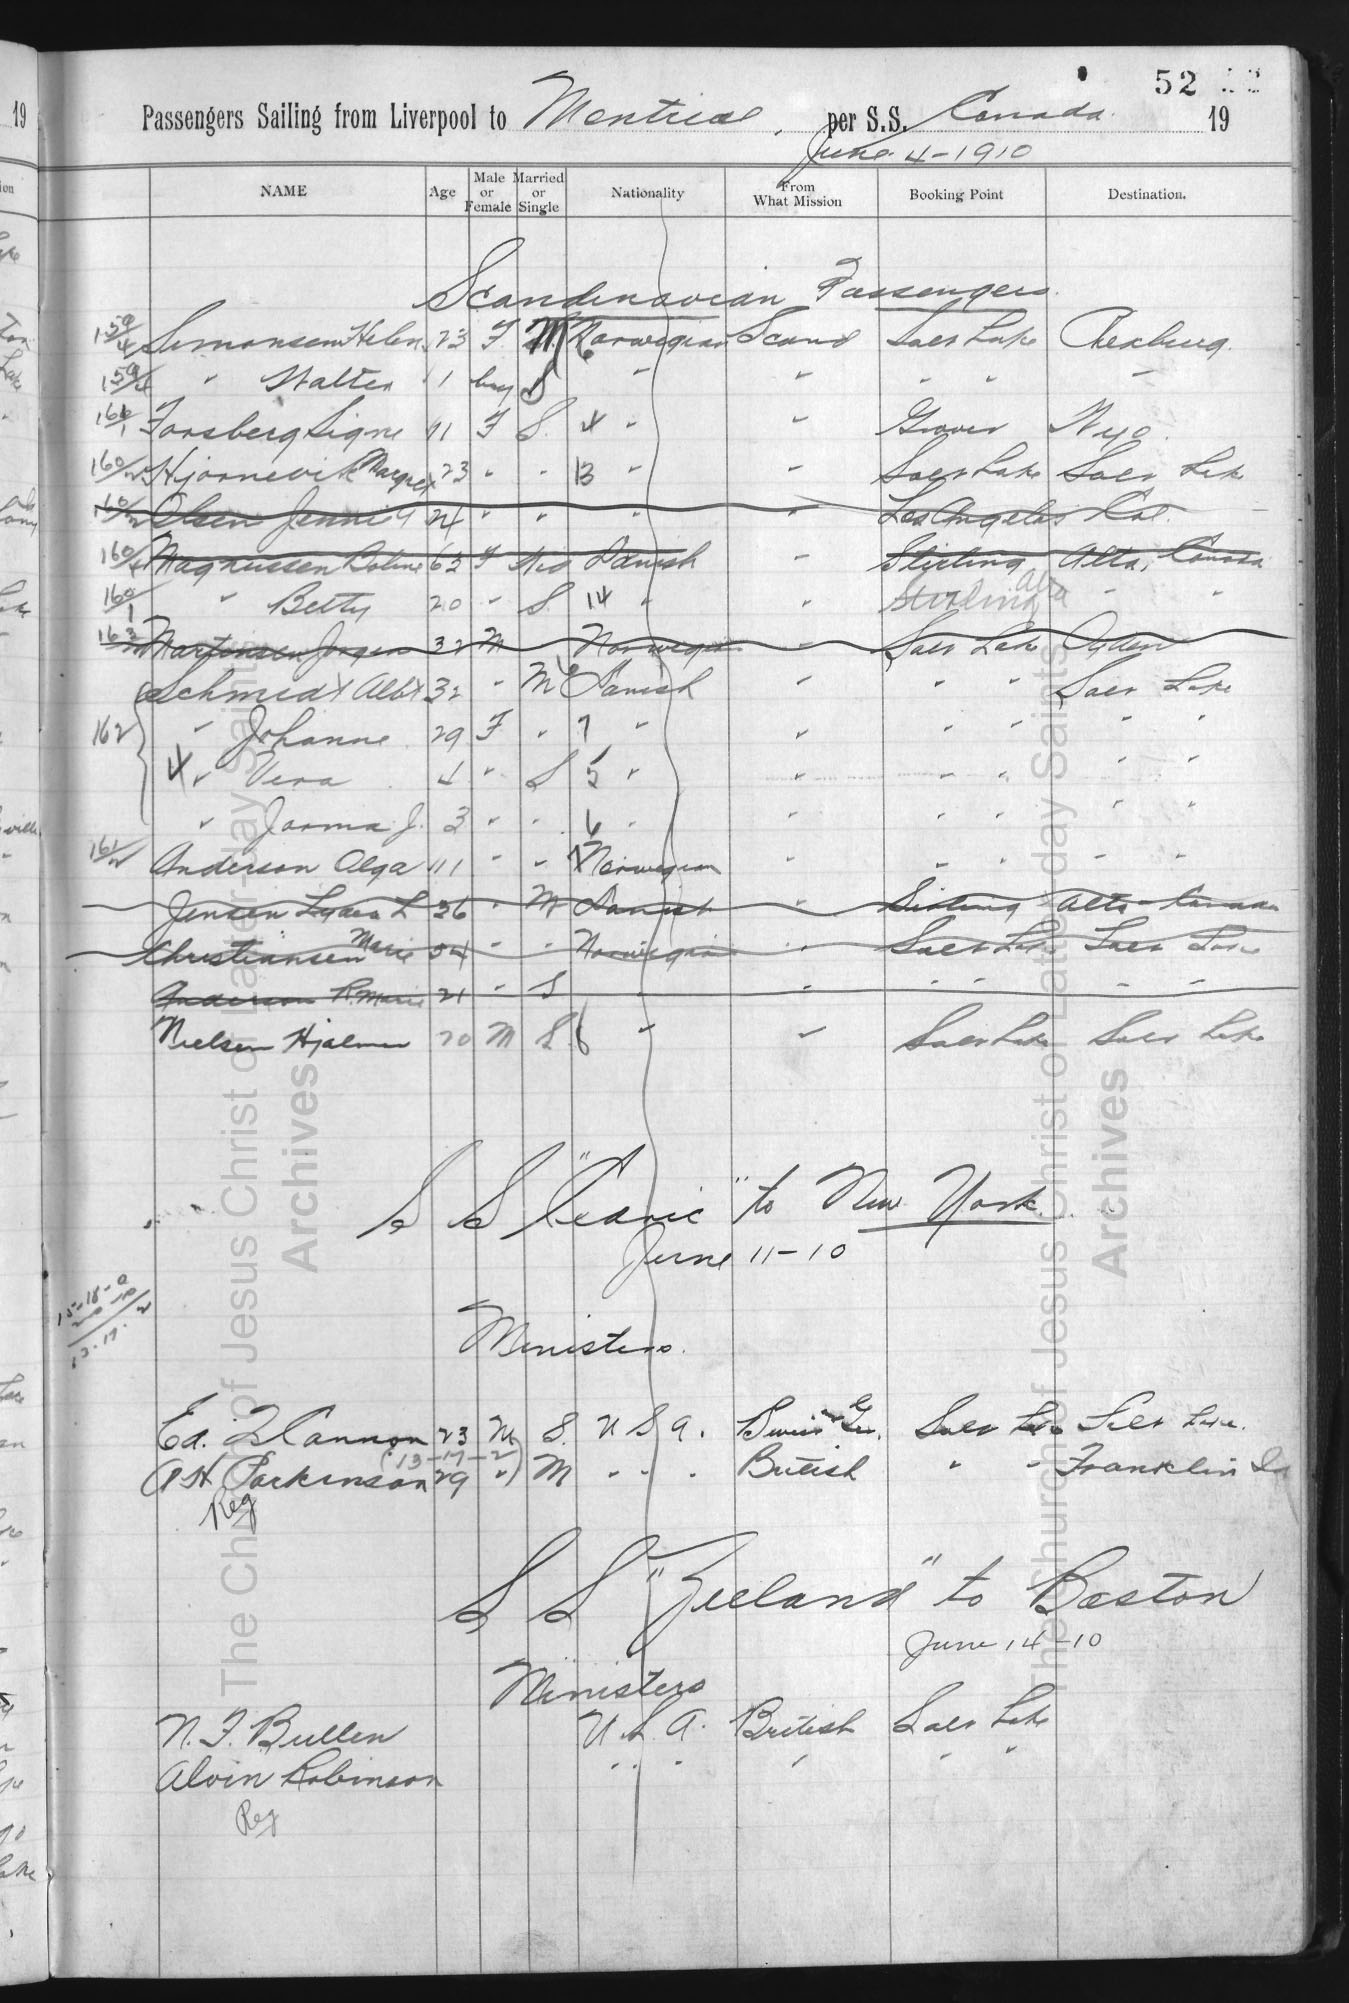 52
Passengers Sailing from Liverpool to Montreal, per S.S. Canada 19
June 4-1910
NAME Age Male or Female Married or Single Nationality From What Mission Booking Point Destination.
Scandinavian Passengers
159/4 Simonsen Helen 23 F M Norwegian Scand Salt Lake Rexburg.
159/4 " Walter 1 boy S " " " " "
160/1 Forsberg Signe 11 F S. 4 " " Grover Wyo.
160/2 Hjornevik Margret 23 " " 13 " " Salt Lake Salt Lake
160/2 Olsen Jennie 24 " " " " Los Angeles Cal.
160/1 Magnussen Boline 63 F Wid Danish " Stirling Alta, Canada
160/1 " Betty 20 " S. 14 " " Stirling Alta " "
163/2 Martensen Jorgen 32 M Norwegian " Salt Lake Ogden
Schmidt Albt 32 " M Danish " " " Salt Lake
162 " Johanne 29 F " 7 " " " " " "
4 " Vera 4 " S 5 " " " " " "
" Joorma J. 3 " " 6 " " " " " "
161/2 Anderson Olga 11 " " Norwegian " " " " "
Jensen Lydia L 26 " M Danish " Stirling Alta Canada
Christiansen Marie 54 " " Norwegian " Salt Lake Salt Lake
Anderson R. Marie 21 " S " " " " " "
Nielsen Hjalmer 20 M S. 6 " " Salt Lake Salt Lake
S S "Cedric" to New York.
June 11-10
15-18-0
13.17.2
Ministers.
Ed. Q Cannon 23 M S. U S A. Swiss & Ger. Salt Lake Salt Lake.
(13-17-2)
A H Parkinson 29 " M " " " British " " Franklin Ida
Reg
S S "Zeeland" to Boston
June 14-10
Ministers
N. F. Bullen U. S. A. British Salt Lake
Alvin Robinson " " " " " "
Reg
The Church of Jesus Christ of Latter-day Saints
Archives
The Church of Jesus Christ of Latter-day Saints
Archives